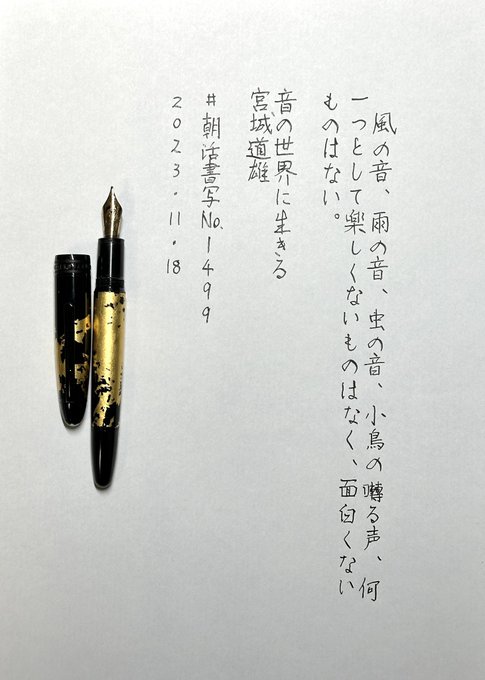 風の音、雨の音、虫の音、小鳥の囀る声、何
一つとして楽しくないものはなく、面白くない
ものはない。
音の世界に生きる
宮城道雄
#朝活書写No.1499
2023.11.18